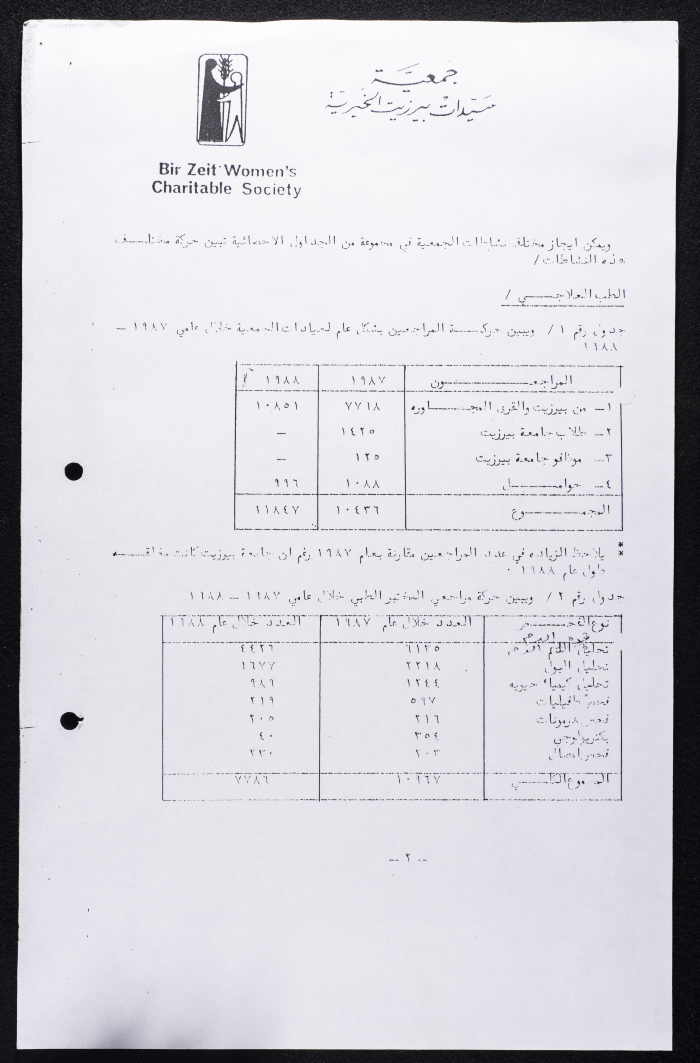 جمعيّة
سيّدات بيرزيت الخيريّة
Bir Zeit Women's
Charitable Society
ويمكن ايجاز مختلف نشاطات الجمعية في مجموعة من الجداول الاحصائية تبين حركة مختلف
هذه النشاطات /
الطب العلاجي /
جدول رقم ١ / ويبين حركة المراجعين بشكل عام لعيادات الجمعية خلال عامي ١٩٨٧ –
١٩٨٨
المراجعون ١٩٨٧ ١٩٨٨
١– من بيرزيت والقرى المجاوره ٧٧٦٨ ١٠٨٥١
٢– طلاب جامعة بيرزيت ١٤٢٥ –
٣– موظفو جامعة بيرزيت ١٢٥ –
٤– حوامل ١٠٨٨ ٩٩٦
المجموع ١٠٤٣٦ ١١٨٤٧
** يلاحظ الزياده في عدد المراجعين مقارنة بعام ١٩٨٧ رغم ان جامعة بيرزيت كانت مغلقه
طول عام ١٩٨٨
جدول رقم ٢ / ويبين حركة مراجعي المختبر الطبي خلال عامي ١٩٨٧ – ١٩٨٨
نوع الفحص العدد خلال عام ١٩٨٧ العدد خلال عام ١٩٨٨
تحليل الدم ٦١٢٥ ٤٤٢٦
تحليل البول ٢٢١٨ ١٦٧٧
تحليل كيمياء حيويه ١٢٤٤ ٩٨٦
فحص طفيليات ٥٩٧ ٢١٩
فحص هرمونات ٢١٦ ٢٠٥
بكتريولوجي ٣٥٤ ٤٠
فحص امصال ٢٠٣ ٢٣٠
المجموع الكلي ١٠٩٦٧ ٧٧٨٦
– ٢ –